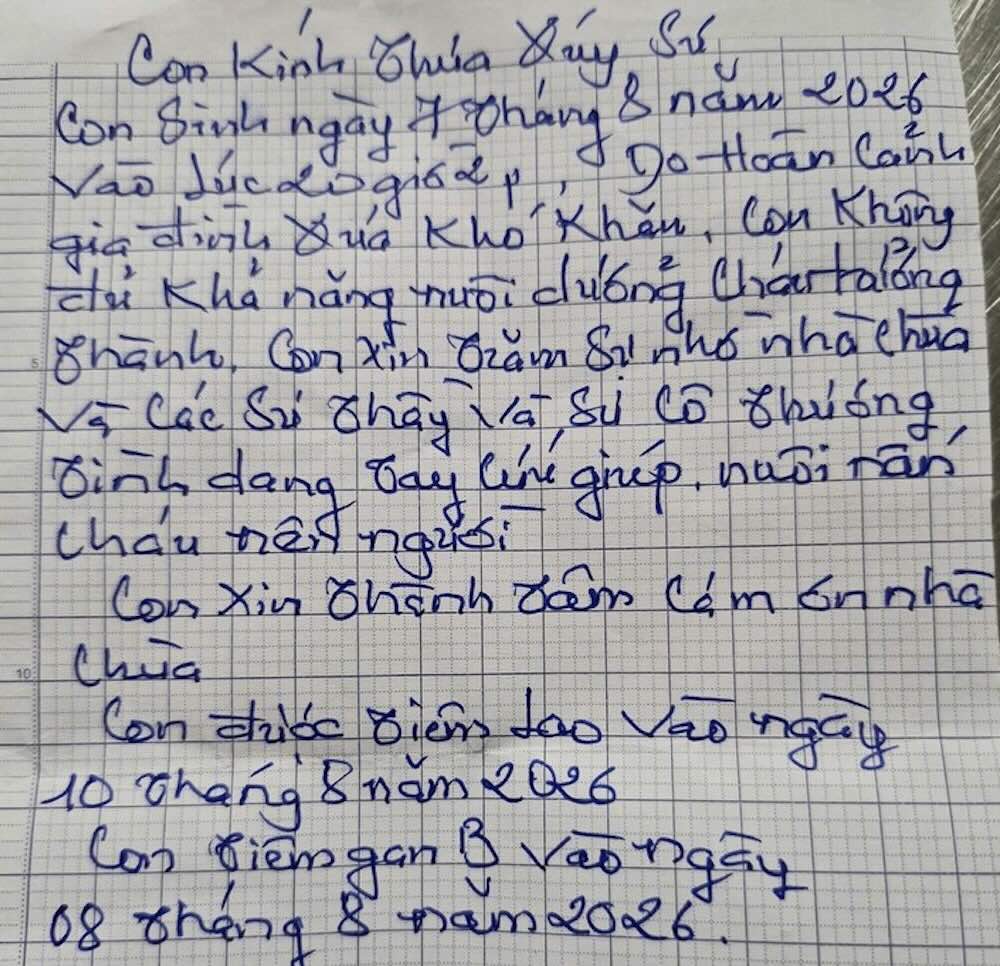 Con Kính Thưa Quý Sư
Con Sinh ngày 7 tháng 8 năm 2026
vào lúc 20 giờ 2p, Do Hoàn Cảnh
gia đình Quá Khó Khăn, Con Không
đủ Khả năng nuôi dưỡng Cháu trưởng
thành, Con xin trăm Sự nhờ nhà chùa
và Các Sư thầy và Sư Cô thương
tình dang tay cứu giúp, nuôi nấn
Cháu nên người
Con xin thành tâm Cám ơn nhà
Chùa
Con được tiêm lao vào ngày
10 tháng 8 năm 2026
Con tiêm gan B vào ngày
08 tháng 8 năm 2026.
5
10